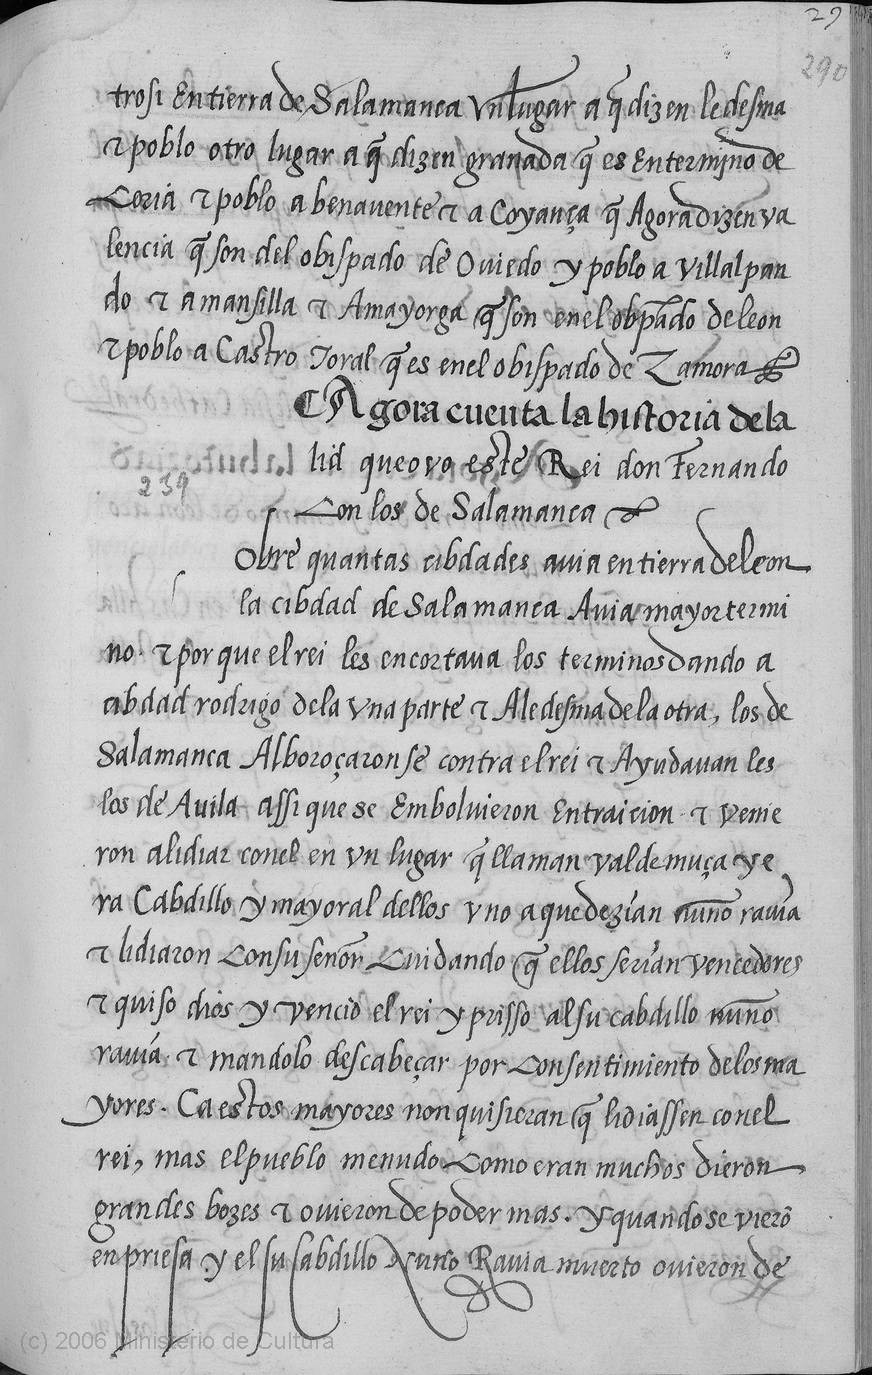 29
290
trosi Entierra de Salamanca Vn lugar a q̃ dizen ledesma
⁊ poblo otro lugar a q̃ dizen granada q̃ es En termino de
Coria ⁊ poblo a benauente ⁊ a Coyança q̃ Agora dizen va
lencia q̃ son del obispado de Oviedo y poblo a Villalpan
do ⁊ a mansilla ⁊ Amayorga q̃ son en el obp̃ado de leon
⁊ poblo a Castro Toral q̃ es en el obispado de Zamora
¶ Agora cuenta la historia de la
lid que ovo este Rei don Fernando
239
Con los de Salamanca
Obre quantas cibdades avia en tierra de leon
la cibdad de Salamanca Avia mayor termi
no. ⁊ por que el rei les encortaua los terminos dando a
cibdad rodrigo de la vna parte ⁊ Aledesma de la otra, los de
Salamanca Alboroçaronse contra el rei ⁊ Ayudauan les
los de Auila assi que se Embolvieron En traicion ⁊ venie
ron a lidiar con el en vn lugar q̃ llaman valdemuça y e
ra Cabdillo y mayoral dellos vno a que dezian nuño ravia
⁊ lidiaron Con su señor Cuidando q̃ ellos serian vencedores
⁊ quiso dios y vencio el rei y prisso al su cabdillo nuño
ravia ⁊ mandolo descabeçar por Consentimiento de los ma
yores. Ca estos mayores non quisieran q̃ lidiassen con el
rei, mas el pueblo menudo Como eran muchos dieron
grandes bozes ⁊ ovieron de poder mas. y quando se vierõ
en priesa y el su Cabdillo Nuño Ravia muerto ovieron de
(c) 2006 Ministerio de Cultura